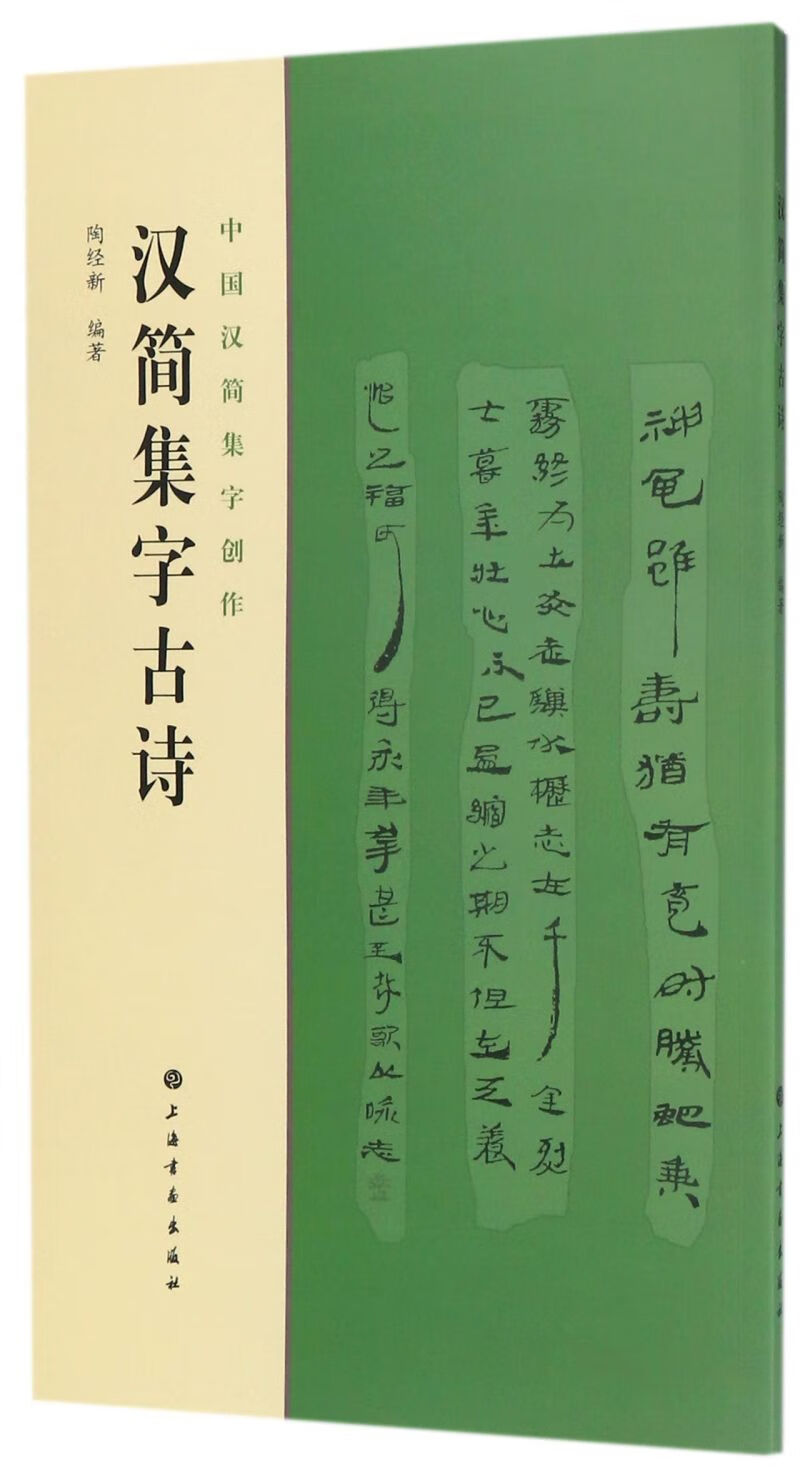 中国汉简集字创作
汉简集字古诗
陶经新 编著
上海书画出版社
神龜雖壽猶有竟时騰虵乘
霧終为土灰老驥伏櫪志在千里烈
士暮年壮心不已盈縮之期不但在天養
怡之福可得永年幸甚至哉歌以咏志
汉简集字古诗 陶经新 编著 上海书画出版社